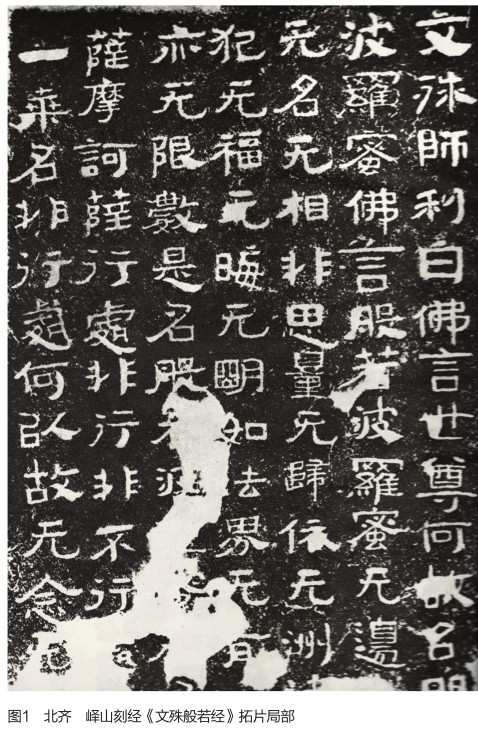 文殊師利白佛言世尊何故名
波羅蜜佛言般若波羅蜜无邊
无名无相非思量无歸依无洲
犯无福无晦无明如法界无有
亦无限數是名般若波
薩摩訶薩行處非行非不行
一乘名非行處何以故无念
图1 北齐 峄山刻经《文殊般若经》拓片局部